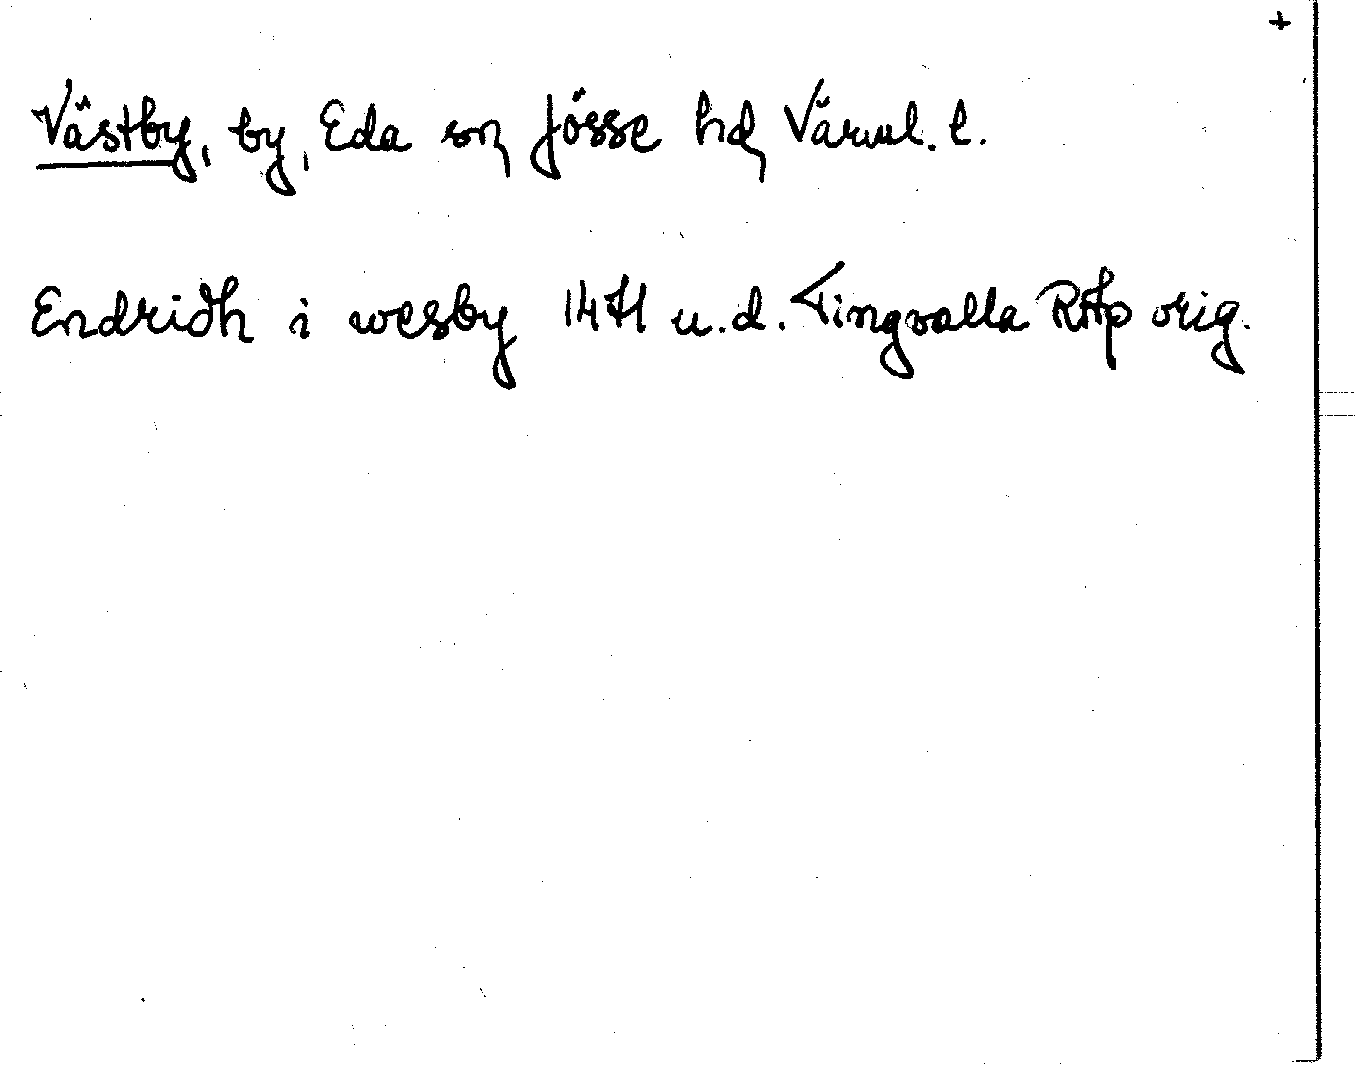 +
Västby, by, Eda sn, Jösse hd, Värml. l.
Endridh i wesby 1471 u.d. Tingvalla RAp orig.